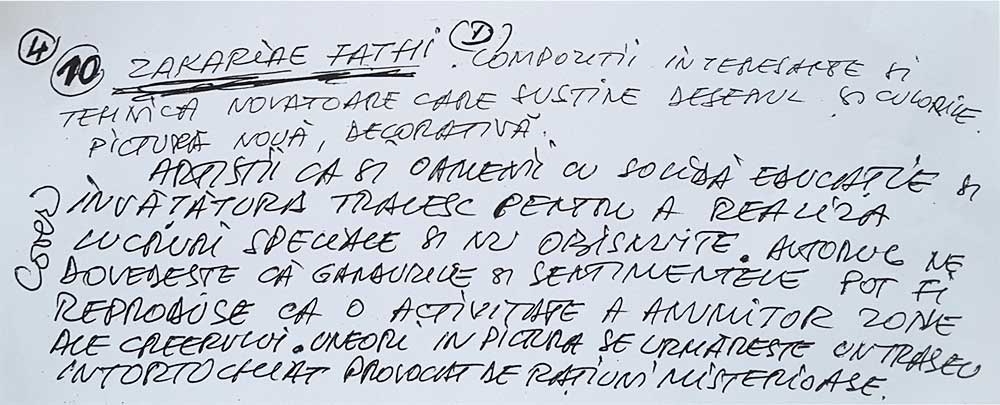 4
10 ZAKARIAE FATHI 1 . COMPOZITII INTERESANTE SI
TEHNICA NOVATOARE CARE SUSTINE DESENUL SI CULORILE.
PICTURA NOUĂ, DECORATIVĂ.
ARTISTII CA SI OAMENII CU SOLIDĂ EDUCATIE SI
INVĂTĂTURĂ TRAIESC PENTRU A REALIZA
LUCRURI SPECIALE SI NU OBISNUITE. AUTORUL NE
DOVEDESTE CĂ GANDURILE SI SENTIMENTELE POT FI
REPRODUSE CA O ACTIVITATE A ANUMITOR ZONE
ALE CREERULUI. UNEORI IN PICTURA SE URMARESTE UN TRASEU
INTORTOCHIAT PROVOCAT DE RATIUNI MISTERIOASE.